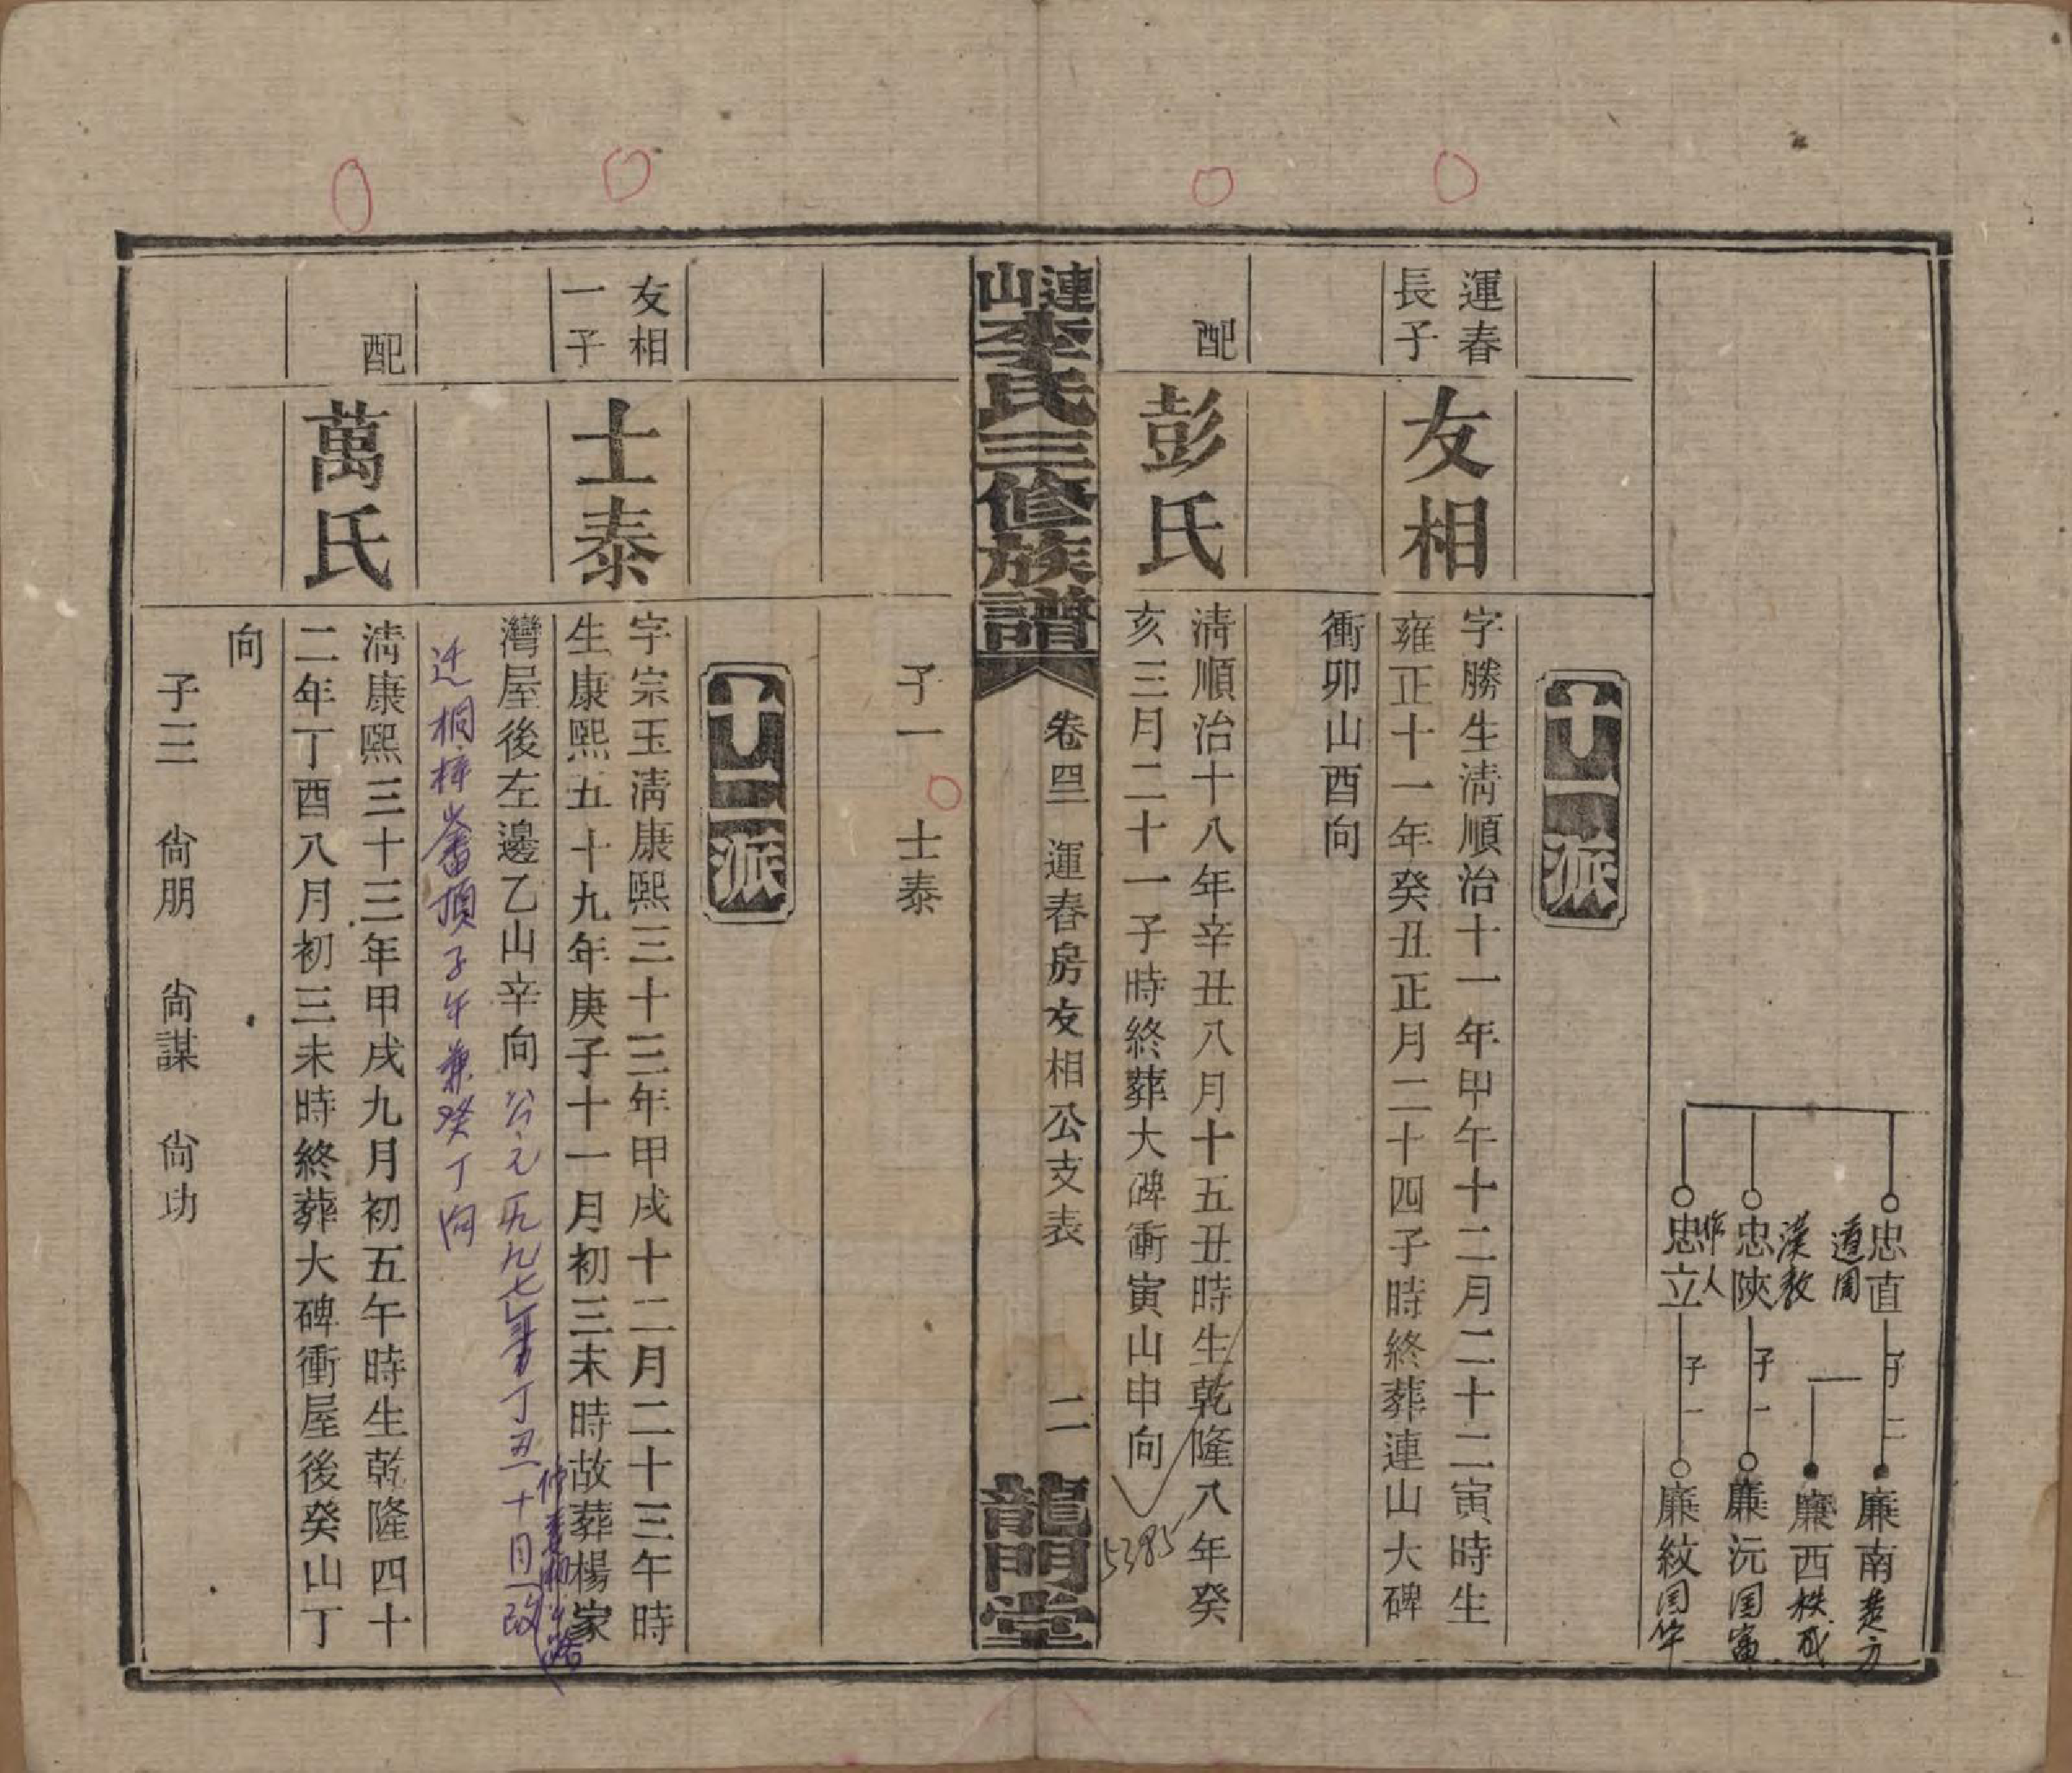 忠直 道周
子二
廉南 楚方
廉西 秩成
忠陝 漢教
子一
廉沅 国富
忠立 作人
子一
廉紋 国华
十一派
運春
長子
友相
字勝生淸順治十一年甲午十二月二十二寅時生
雍正十一年癸丑正月二十四子時終葬連山大碑
衝卯山酉向
配
彭氏
淸順治十八年辛丑八月十五丑時生乾隆八年癸
亥三月二十一子時終葬大碑衝寅山申向
5385
連山李氏三修族譜
卷四
運春房友相公支表
二
龍門堂
子一 士泰
十二派
友相
一子
士泰
字宗玉淸康熙三十三年甲戌十二月二十三午時
生康熙五十九年庚子十一月初三未時故葬楊家
灣屋後左邊乙山辛向 公元一九九七年丁丑十月改
迁桐梓 頂子午兼癸丁向
配
萬氏
淸康熙三十三年甲戌九月初五午時生乾隆四十
二年丁酉八月初三未時終葬大碑衝屋後癸山丁
向
子三 尙朋 尙謀 尙功